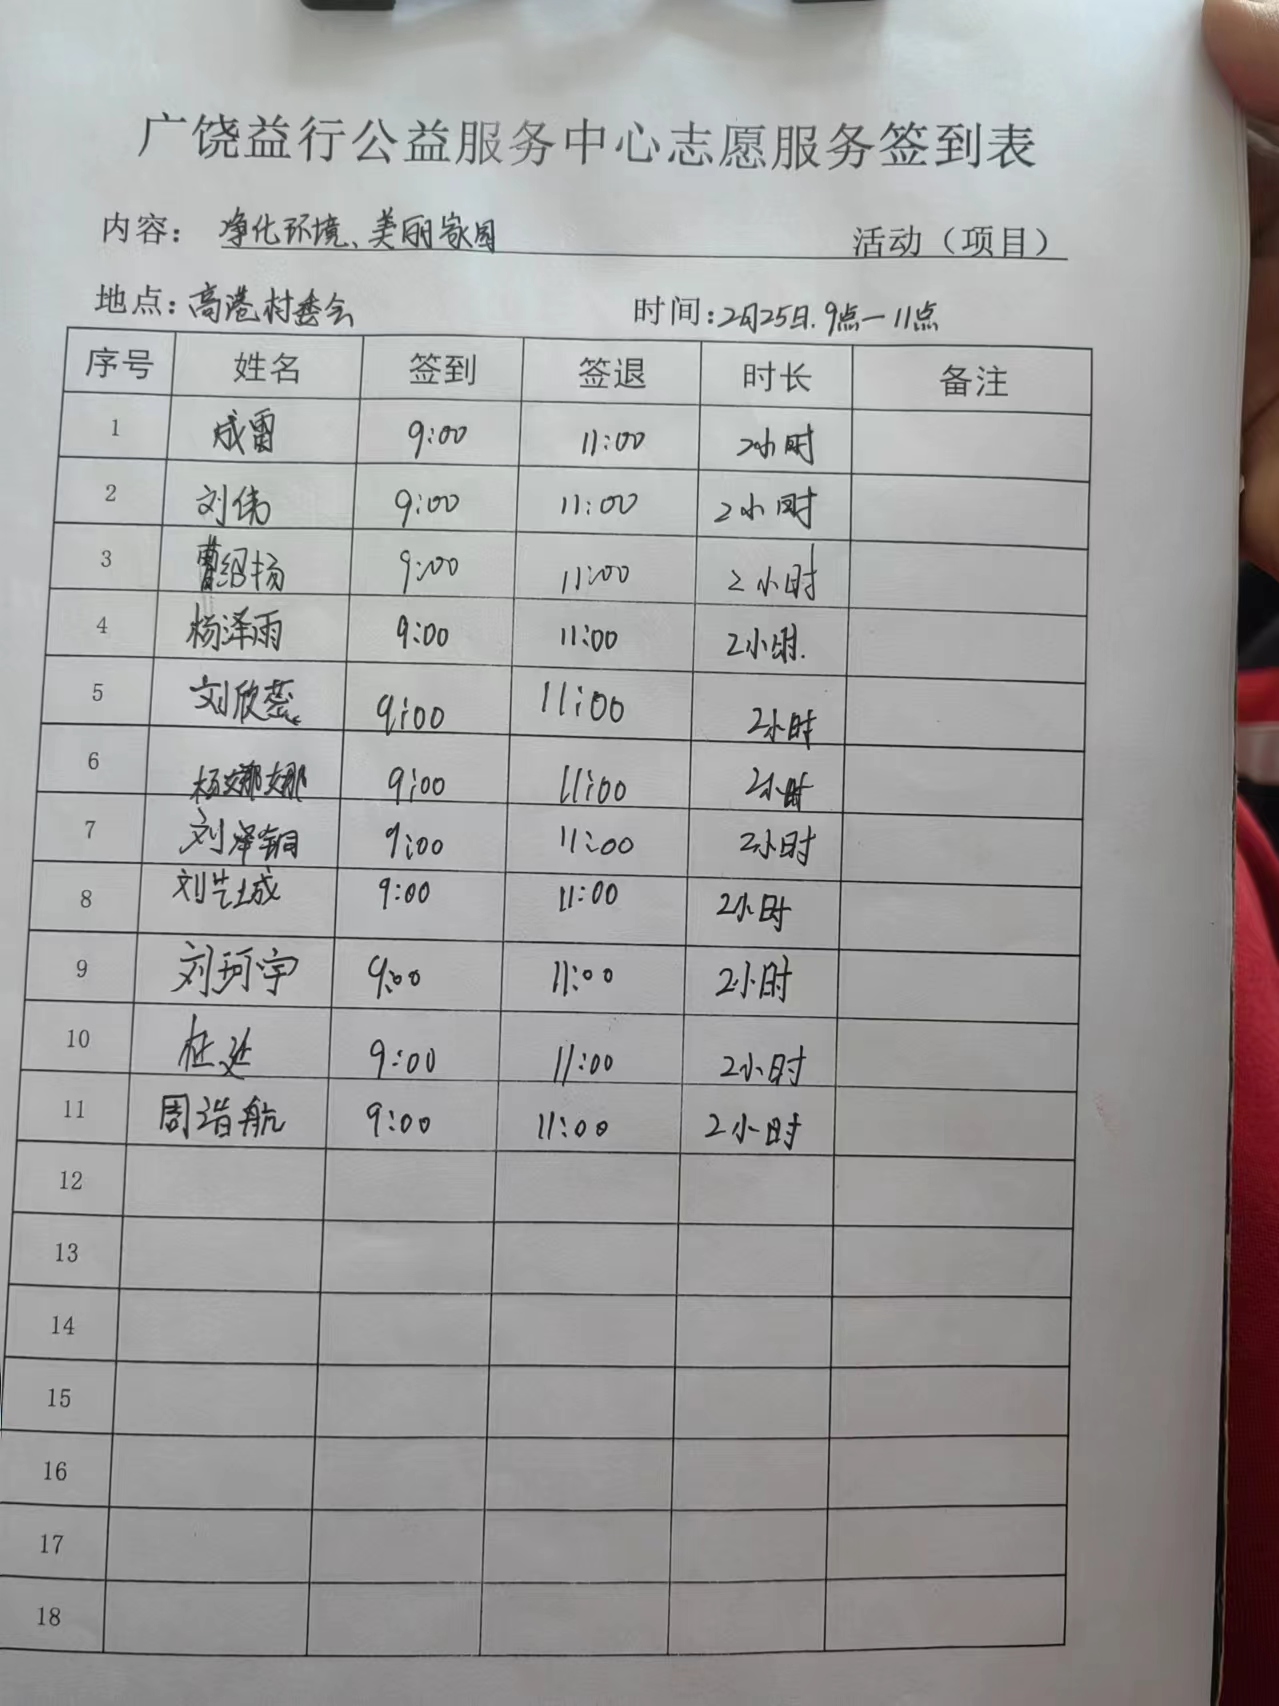 广饶益行公益服务中心志愿服务签到表
内容： 净化环境、美丽家园 活动（项目）
地点：高港村委会 时间：2月25日.9点—11点
序号 姓名 签到 签退 时长 备注
1 成雷 9:00 11:00 2小时
2 刘伟 9:00 11:00 2小时
3 曹绍扬 9:00 11:00 2小时
4 杨泽雨 9:00 11:00 2小时.
5 刘欣蕊 9:00 11:00 2小时
6 杨娜娜 9:00 11:00 2小时
7 刘泽铜 9:00 11:00 2小时
8 刘艺城 9:00 11:00 2小时
9 刘珂宇 9:00 11:00 2小时
10 杜延 9:00 11:00 2小时
11 周诣航 9:00 11:00 2小时
12
13
14
15
16
17
18